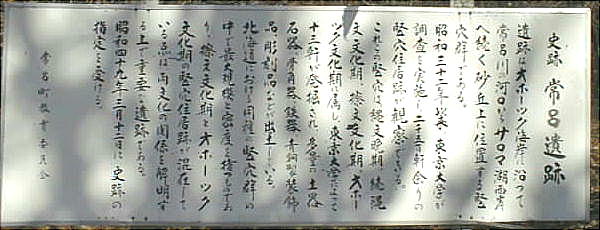 史跡 常呂遺跡
遺跡はオホーツク海岸に沿って
常呂川の河口からサロマ湖西岸
へ続く砂丘上に位置する竪
穴群である。
昭和三十二年以来、東京大学が
調査を実施し二千五百軒余りの
竪穴住居跡が観察でている。
これらの竪穴は縄文晩期 続縄
文文化期 擦文文化期 オホー
ツク文化期に属し、東京大学によって
十三軒が発掘され、多量の土器
石器、骨角器、鉄器、青銅製の装飾
品、彫刻品などが出土している。
北海道における同種の竪穴群の
中で最大規模と密度を持つものであ
り、擦文文化期とオホーツク
文化期の竪穴住居跡が混在して
いる点は両文化の関係を解明す
る上で重要な遺跡である。
昭和四十九年三月十二日に史跡の
指定を受ける。
常呂町教育委員会